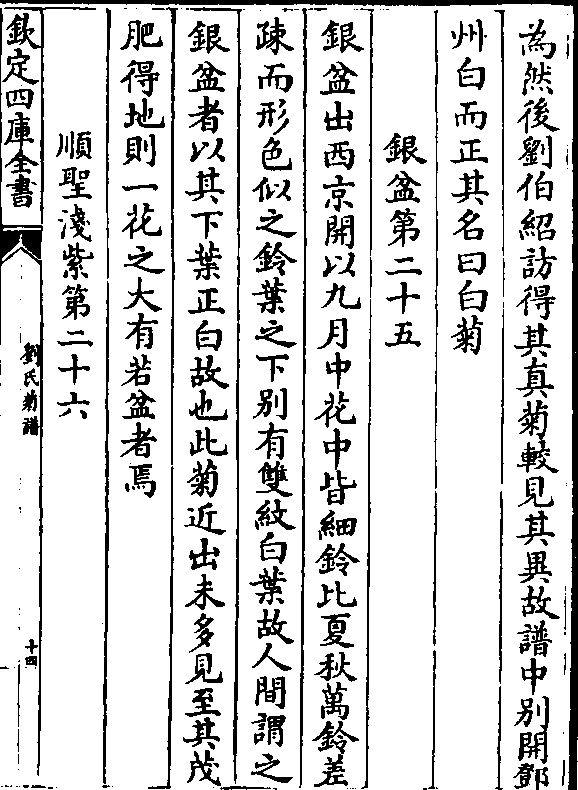 為然後劉伯紹訪得其真菊較見其異故譜中別開鄧
州白而正其名曰白菊
銀盆第二十五
銀盆出西京開以九月中花中皆細鈴比夏秋萬鈴差
疎而形色似之鈴葉之下別有雙紋白葉故人間謂之
銀盆者以其下葉正白故也此菊近出未多見至其茂
肥得地則一花之大有若盆者焉
順聖淺紫第二十六
欽定四庫全書
劉氏菊譜
十四